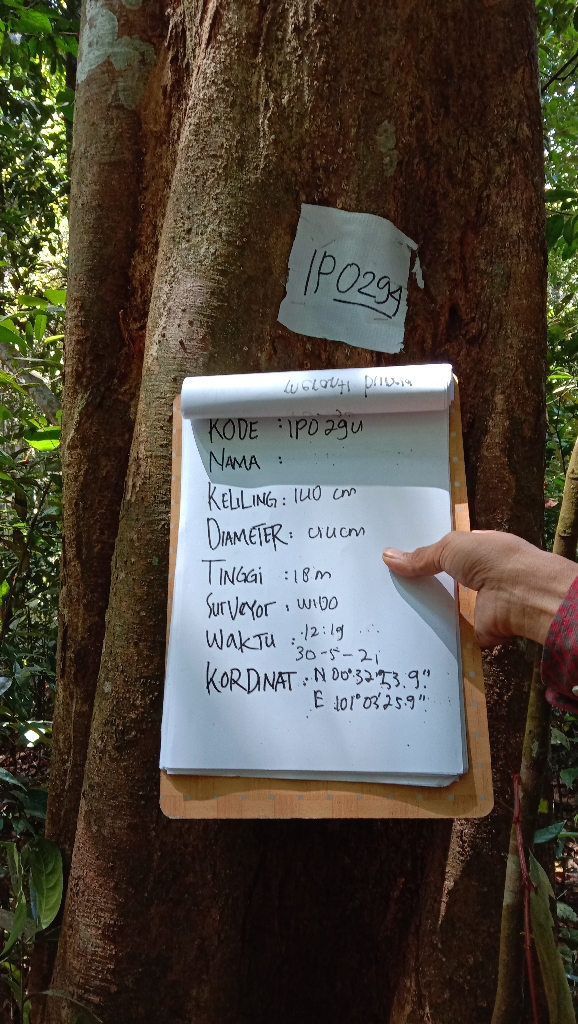 IP0294
KODE : IP0294
NAMA :
KELILING : 140 cm
DIAMETER : 44cm
TINGGI : 18 m
Surveyor : WIDO
WAKTU : 12:19
30-5-21
KORDINAT : N 00°32'53.9"
E 101°03'25.9"